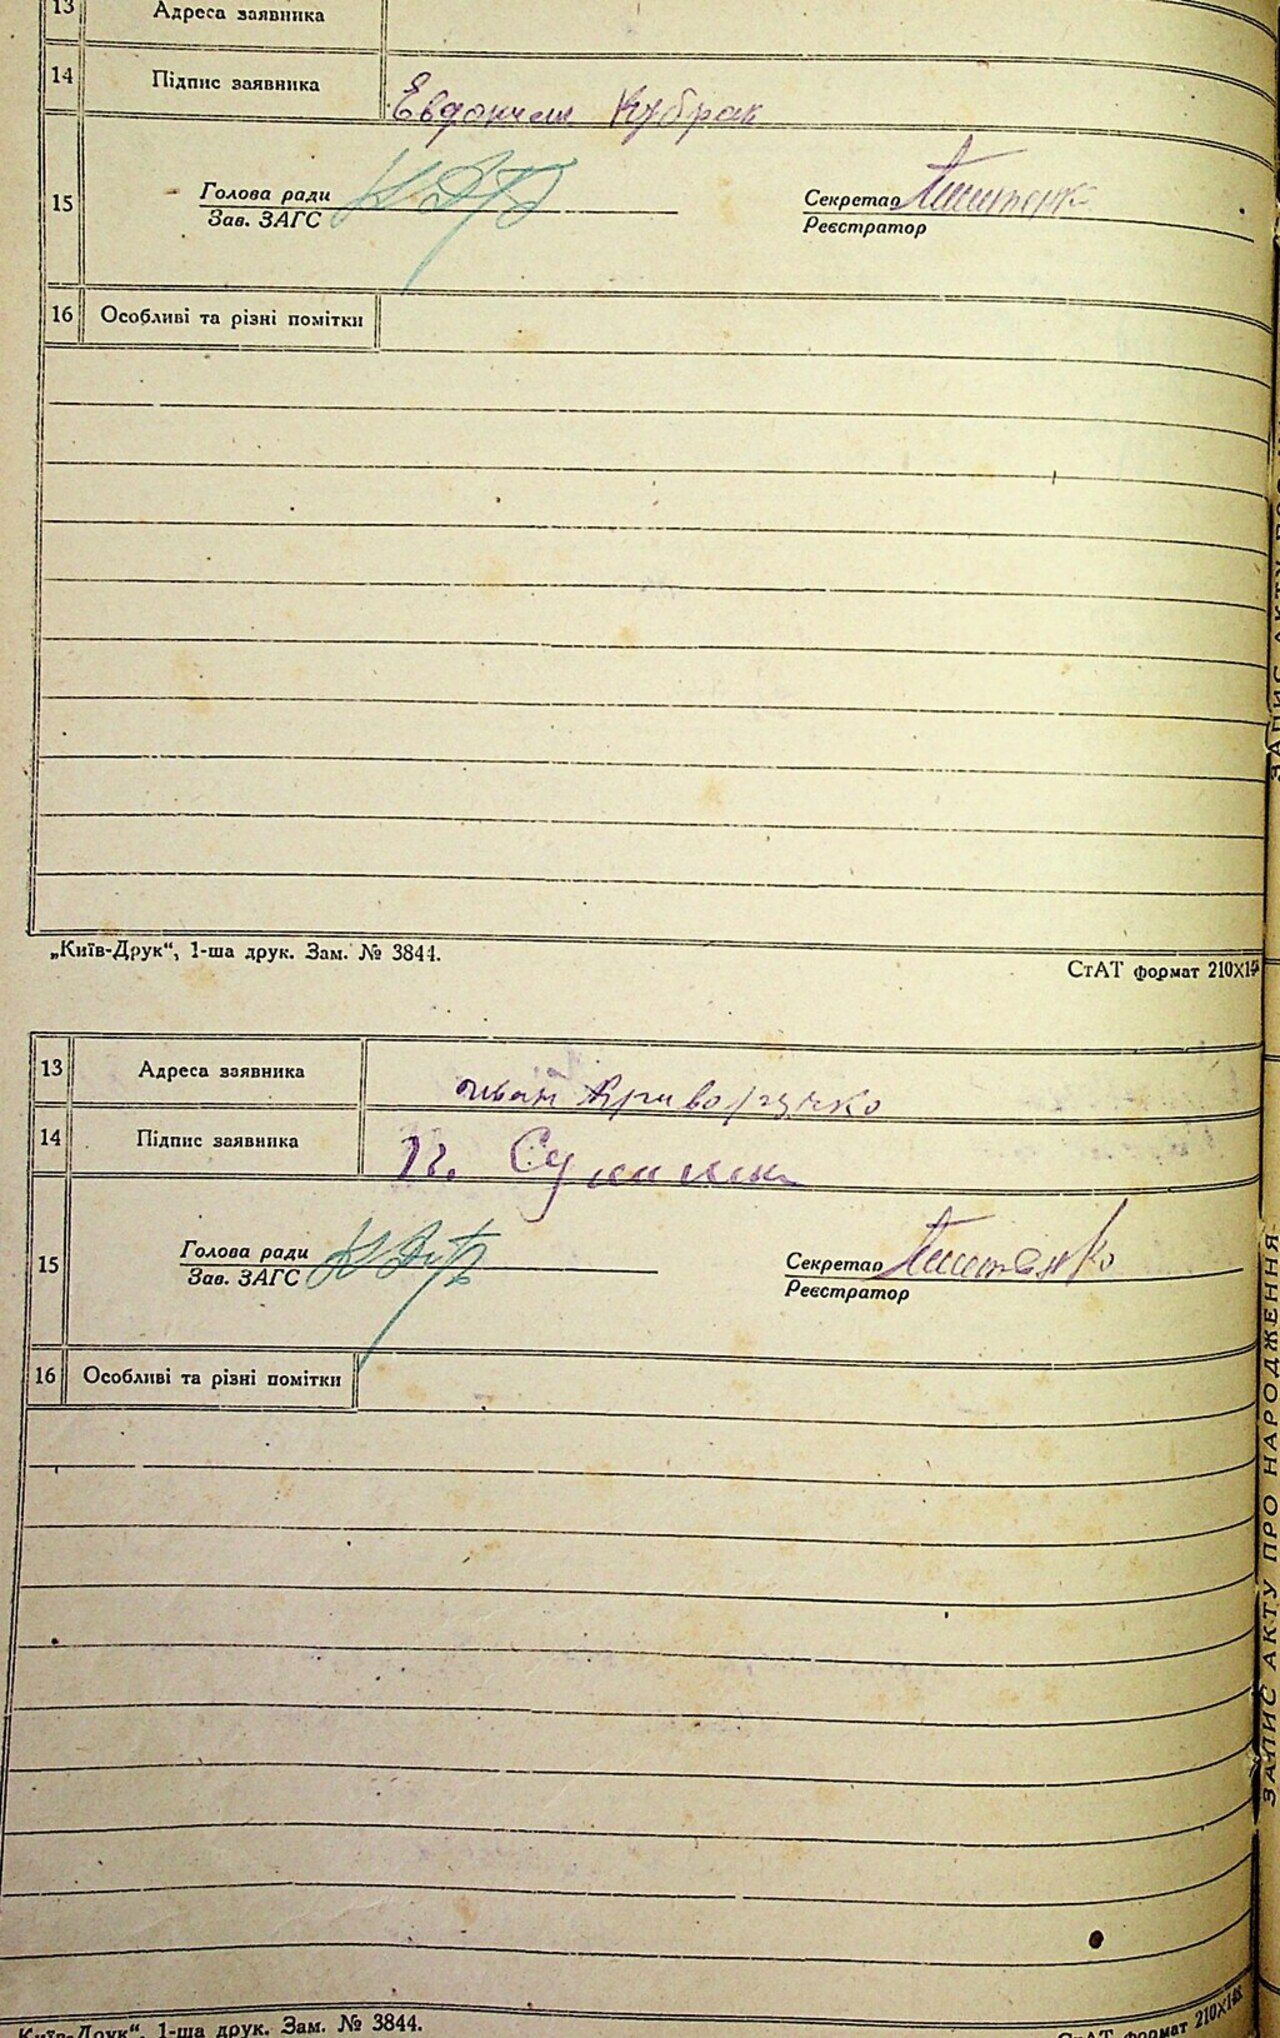 13 Адреса заявника
14 Підпис заявника Евдокия Кубрак
15 Голова ради Секретар
Зав. ЗАГС Реєстратор
16 Особливі та різні помітки
„Київ-Друк“, 1-ша друк. Зам. № 3844.
СтАТ формат 210X148
13 Адреса заявника Иван Криворучко
14 Підпис заявника
15 Голова ради Секретар
Зав. ЗАГС Реєстратор
16 Особливі та різні помітки
Київ-Друк“, 1-ша друк. Зам. № 3844.
СтАТ формат 210X148
ЗАПИС АКТУ ПРО НАРОДЖЕННЯ